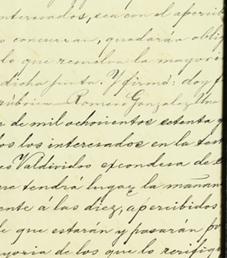 interesados, sea con el apercib
concurran, quedarán oblig
lo que resuelva la mayorí
dicha junta. Y firmó: doy f
Romero Gonzalez
de mil ochocientos setenta y
los los interesados en la test
Valdivides
tendrá lugar la mañan
ente á las diez, apercibidos
e que estaran y pasarán po
yoria de los que lo verifiq